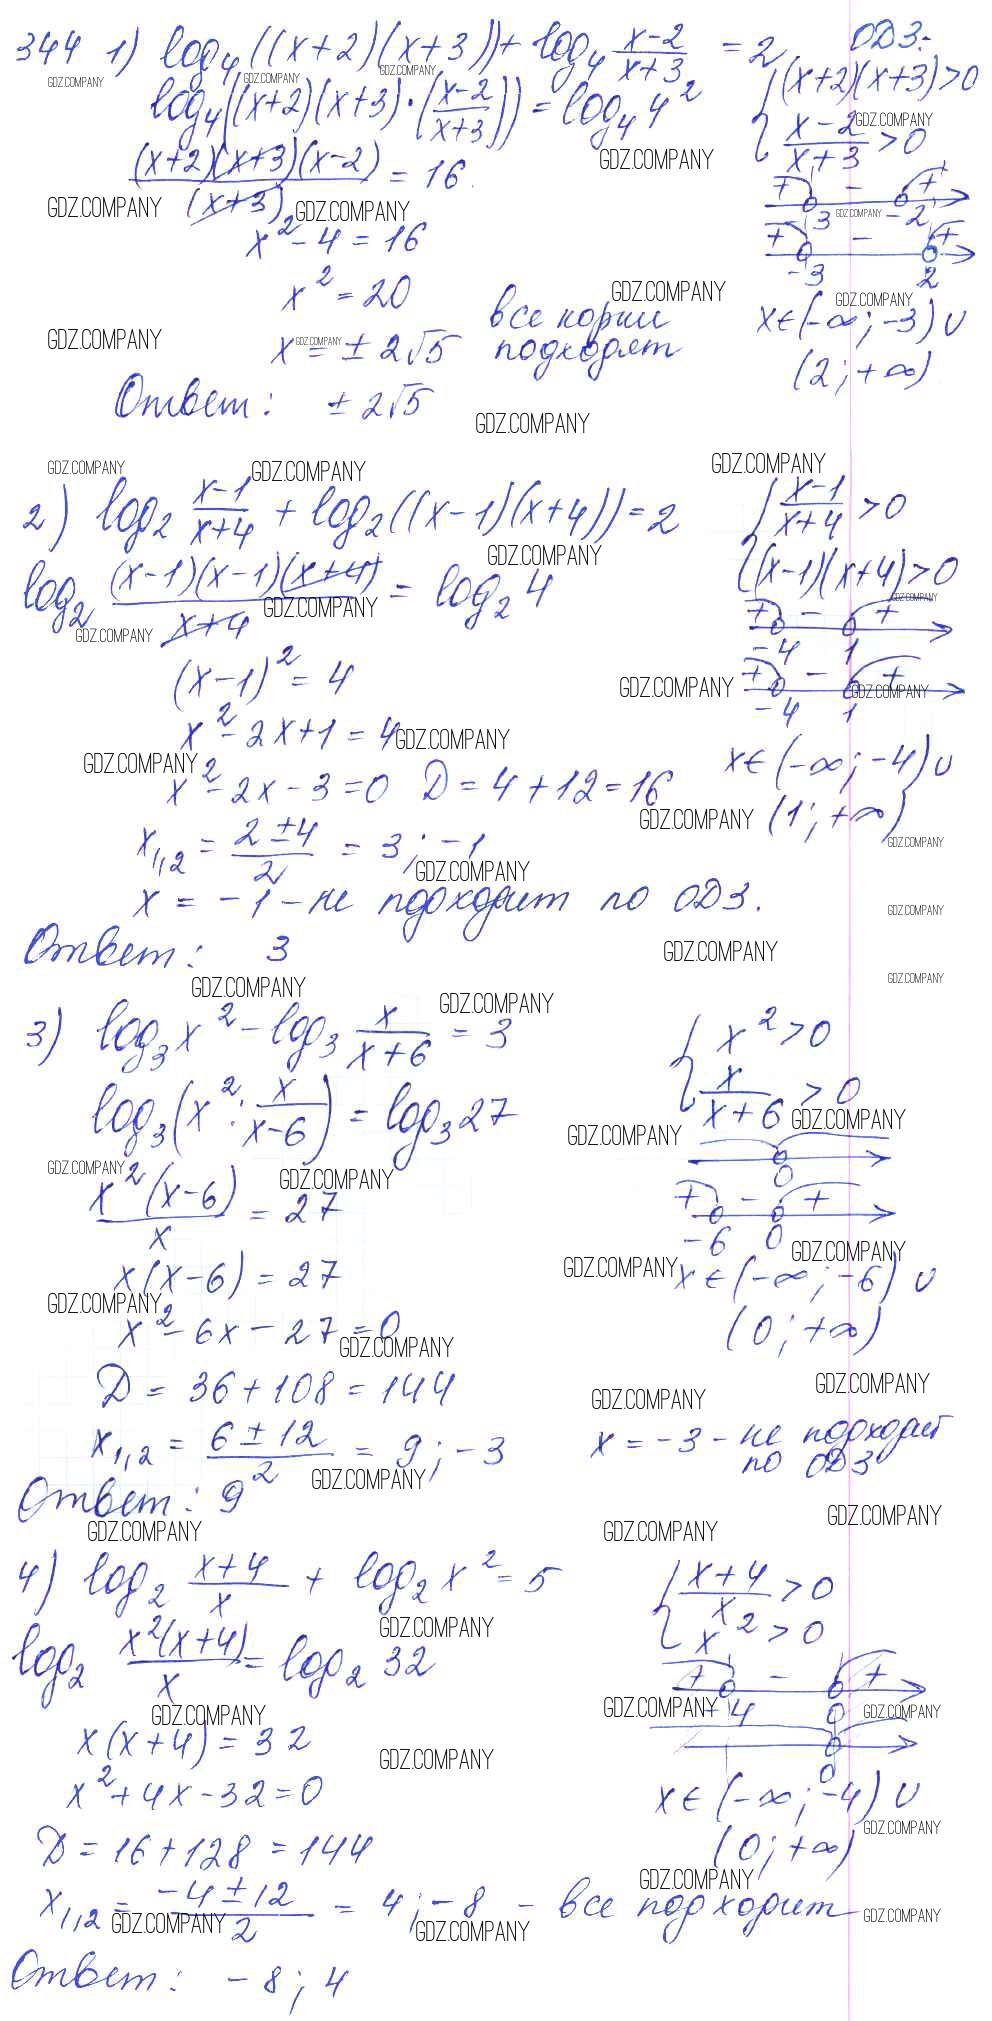 344 1) log₄((x+2)(x+3)) + log₄ (x-2)/(x+3) = 2 ОДЗ:
log₄((x+2)(x+3)·((x-2)/(x+3))) = log₄ 4²
{(x+2)(x+3)>0
(x-2)/(x+3) > 0
((x+2)(x+3)(x-2))/(x+3) = 16
+ - +
-3 -2
x² - 4 = 16
+ - +
-3 2
x² = 20
x = ± 2√5 все корни подходят
x∈(-∞; -3) ∪
(2; +∞)
Ответ: ± 2√5
2) log₂ (x-1)/(x+4) + log₂((x-1)(x+4)) = 2
{(x-1)/(x+4) > 0
(x-1)(x+4)>0
log₂ ((x-1)(x-1)(x+4))/(x+4) = log₂ 4
+ - +
-4 1
(x-1)² = 4
+ - +
-4 1
x² - 2x + 1 = 4
x² - 2x - 3 = 0 D = 4 + 12 = 16
x∈(-∞; -4) ∪
(1; +∞)
x₁,₂ = (2±4)/2 = 3; -1
x = -1 - не подходит по ОДЗ.
Ответ: 3
3) log₃ x² - log₃ x/(x+6) = 3
{x² > 0
x/(x+6) > 0
log₃(x² : x/(x-6)) = log₃ 27
0
(x²(x-6))/x = 27
+ - +
-6 0
x(x-6) = 27
x∈(-∞; -6) ∪
(0; +∞)
x² - 6x - 27 = 0
D = 36 + 108 = 144
x₁,₂ = (6±12)/2 = 9; -3
x = -3 - не подходит
по ОДЗ
Ответ: 9
4) log₂ (x+4)/x + log₂ x² = 5
{(x+4)/x > 0
x² > 0
log₂ (x²(x+4))/x = log₂ 32
+ - +
-4 0
0
x(x+4) = 32
x² + 4x - 32 = 0
x∈(-∞; -4) ∪
(0; +∞)
D = 16 + 128 = 144
x₁,₂ = (-4±12)/2 = 4; -8 - все подходит
Ответ: -8; 4
GDZ.COMPANY